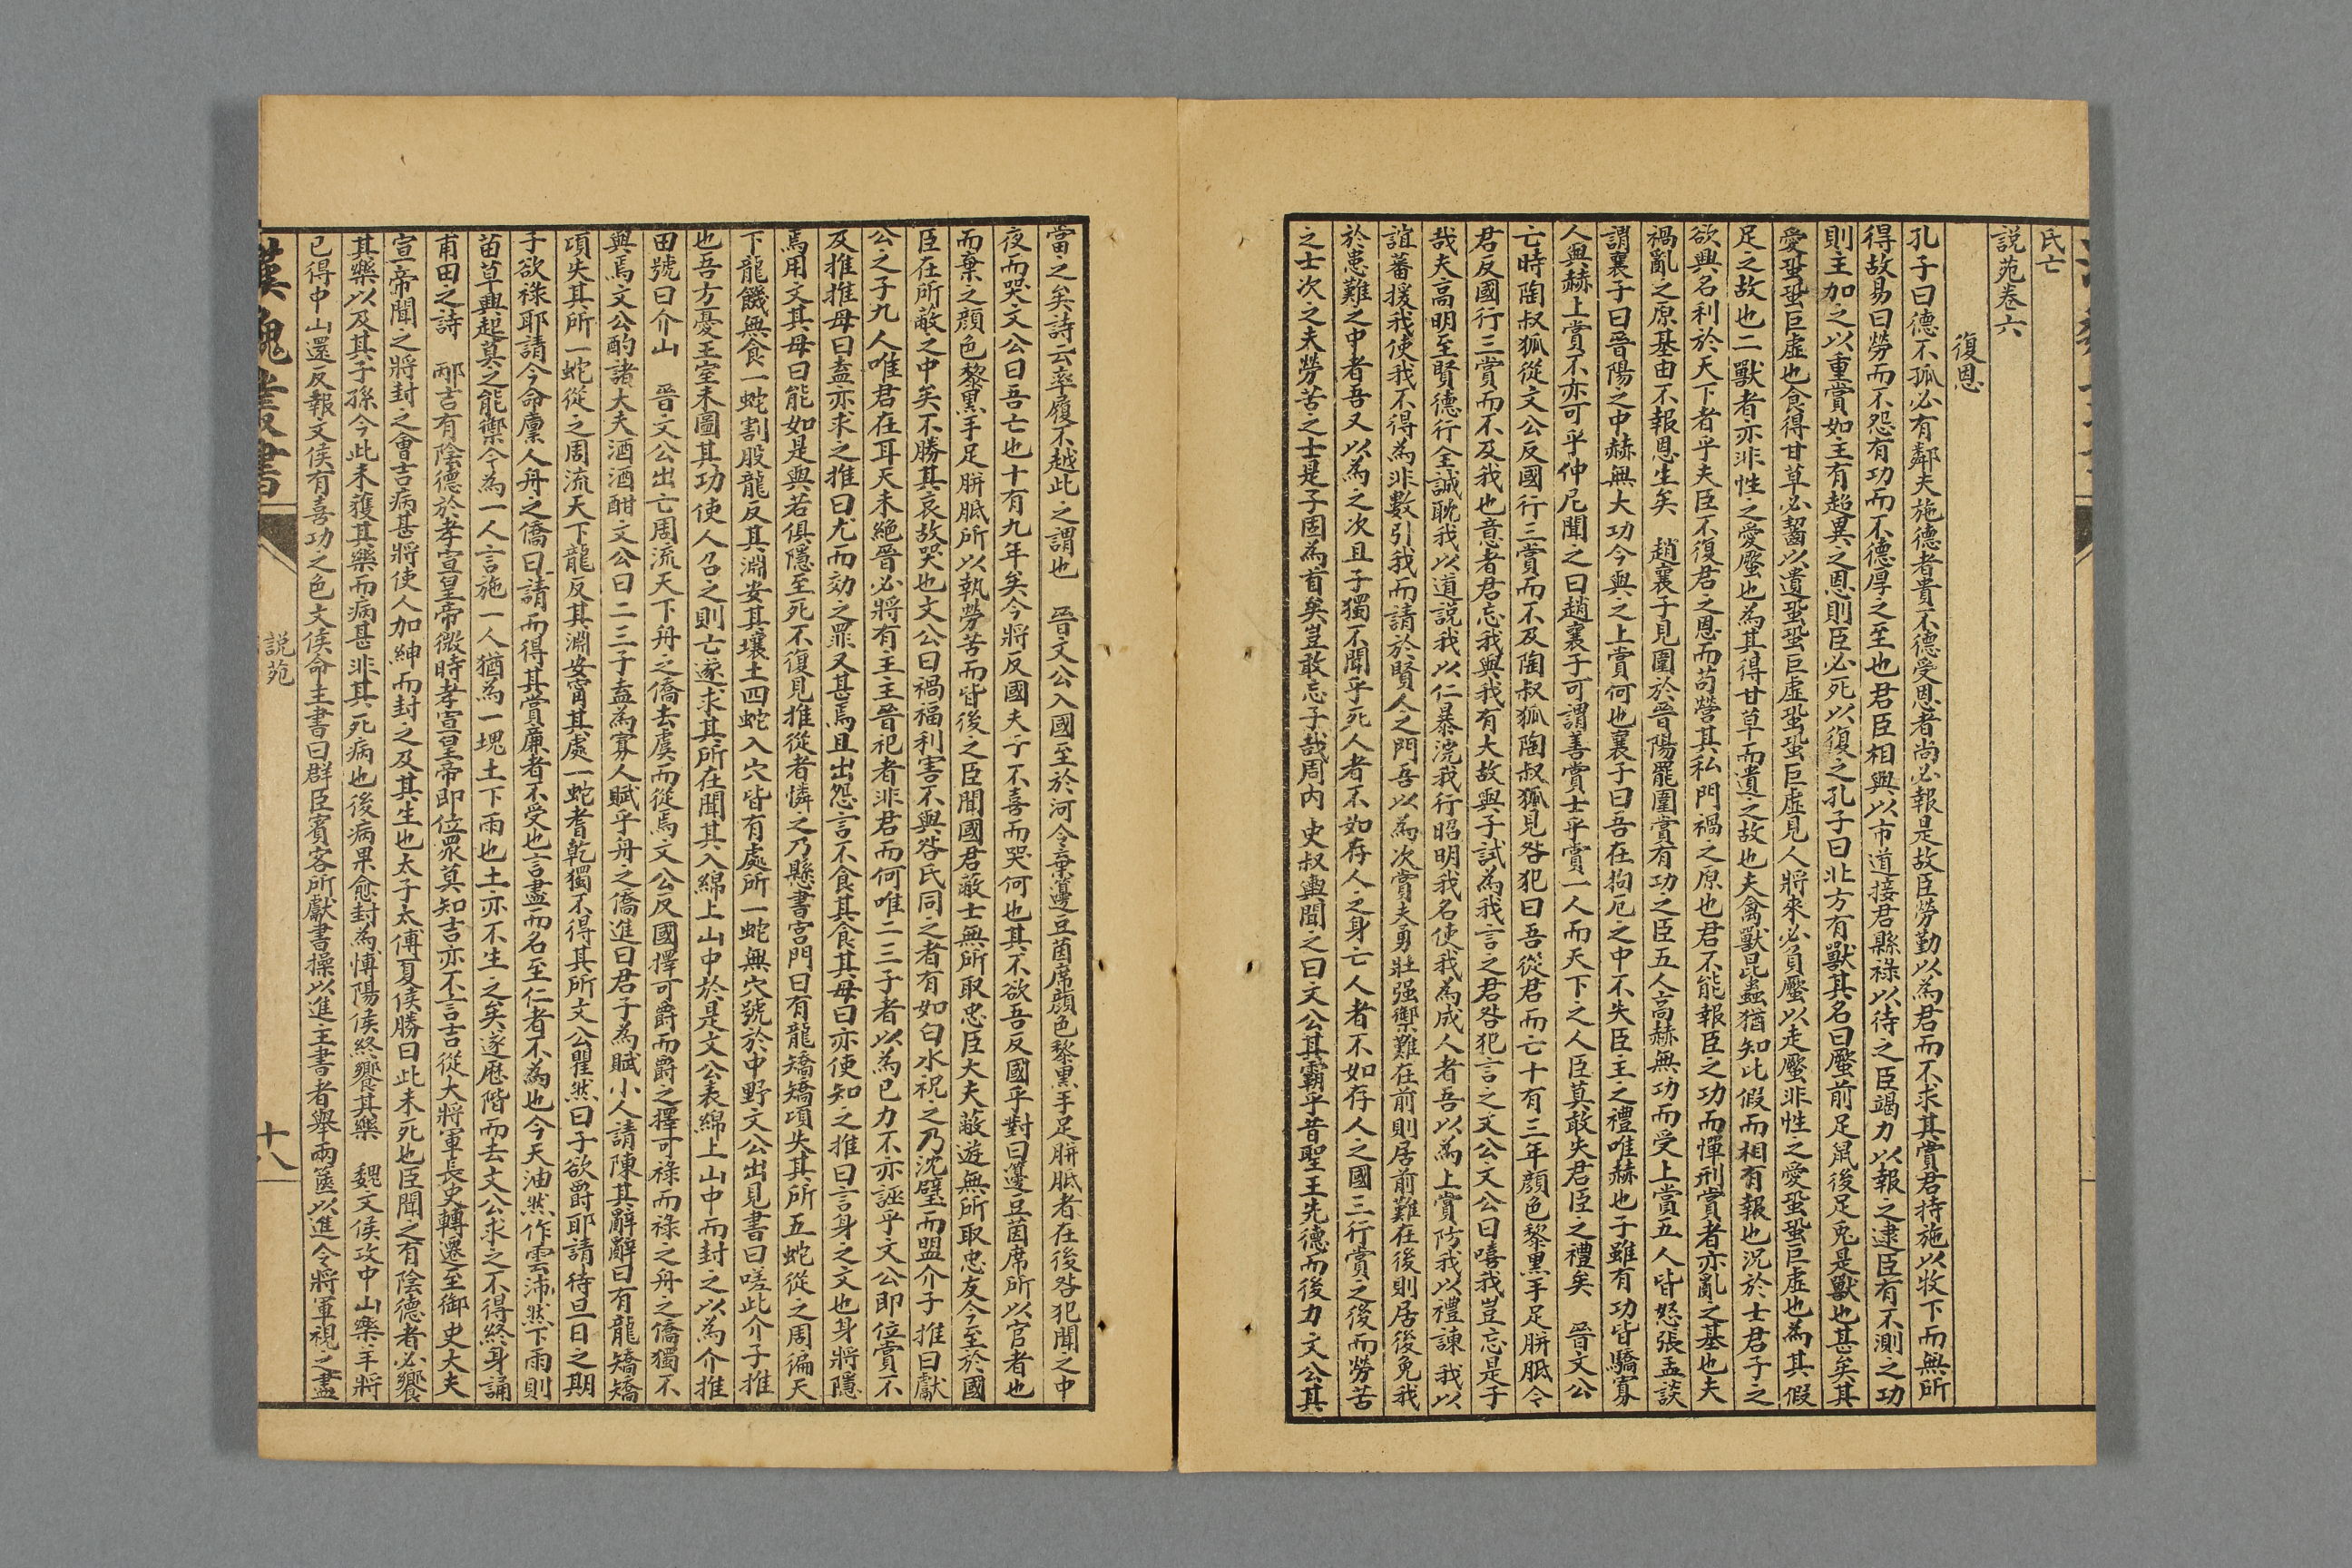 氏亡
説苑卷六
復恩
孔子曰德不孤必有鄰夫施德者貴不德受恩者尚必報是故臣勞勤以為君而不求其賞君持施以牧下而無所
得故易曰勞而不怨有功而不德厚之至也君臣相與以市道接君縣祿以待之臣竭力以報之逮臣有不測之功
則主加之以重賞如主有超異之恩則臣必死以復之孔子曰北方有獸其名曰蟨前足鼠後足兎是獸也甚矣其
愛蛩蛩巨虛也食得甘草必齧以遺蛩蛩巨虛蛩蛩巨虛見人將來必負蟨以走蟨非性之愛蛩蛩巨虛也為其假
足之故也二獸者亦非性之愛蟨也為其得甘草而遺之故也夫禽獸昆蟲猶知比假而相有報也況於士君子之
欲興名利於天下者乎夫臣不復君之恩而苟營其私門禍之原也君不能報臣之功而憚刑賞者亦亂之基也夫
禍亂之原基由不報恩生矣　趙襄子見圍於晉陽罷圍賞有功之臣五人高赫無功而受上賞五人皆怒張孟談
謂襄子曰晉陽之中赫無大功今與之上賞何也襄子曰吾在拘厄之中不失臣主之禮唯赫也子雖有功皆驕寡
人與赫上賞不亦可乎仲尼聞之曰趙襄子可謂善賞士乎賞一人而天下之人臣莫敢失君臣之禮矣　晉文公
亡時陶叔狐從文公反國行三賞而不及陶叔狐陶叔狐見咎犯曰吾從君而亡十有三年顏色黎黑手足胼胝今
君反國行三賞而不及我也意者君忘我與我有大故與子試為我言之君咎犯言之文公文公曰嘻我豈忘是子
哉夫高明至賢德行全誠耽我以道説我以仁暴浣我行昭明我名使我為成人者吾以為上賞防我以禮諫我以
誼蕃援我使我不得為非數引我而請於賢人之門吾以為次賞夫勇壯强禦難在前則居前難在後則居後免我
於患難之中者吾又以為之次且子獨不聞乎死人者不如存人之身亡人者不如存人之國三行賞之後而勞苦
之士次之夫勞苦之士是子固為首矣豈敢忘子哉周内史叔輿聞之曰文公其霸乎昔聖王先德而後力文公其
當之矣詩云率履不越此之謂也　晉文公入國至於河令棄籩豆茵席顏色黎黑手足胼胝者在後咎犯聞之中
夜而哭文公曰吾亡也十有九年矣今將反國夫子不喜而哭何也其不欲吾反國乎對曰籩豆茵席所以官者也
而棄之顏色黎黑手足胼胝所以執勞苦而皆後之臣聞國君蔽士無所取忠臣大夫蔽遊無所取忠友今至於國
臣在所蔽之中矣不勝其哀故哭也文公曰禍福利害不與咎氏同之者有如白水祝之乃沈璧而盟介子推曰獻
公之子九人唯君在耳天未絶晉必將有主主晉祀者非君而何唯二三子者以為已力不亦誣乎文公即位賞不
及推推母曰盍亦求之推曰尤而効之罪又甚焉且出怨言不食其食其母曰亦使知之推曰言身之文也身將隱
焉用文其母曰能如是與若俱隱至死不復見推從者憐之乃懸書宮門曰有龍矯矯項失其所五蛇從之周徧天
下龍饑無食一蛇割股龍反其淵安其壤土四蛇入穴皆有處所一蛇無穴號於中野文公出見書曰嗟此介子推
也吾方憂王室未圖其功使人召之則亡遂求其所在聞其入綿上山中於是文公表綿上山中而封之以為介推
田號曰介山　晉文公出亡周流天下舟之僑去虞而從焉文公反國擇可爵而爵之擇可祿而祿之舟之僑獨不
與焉文公酌諸大夫酒酒酣文公曰二三子盍為寡人賦乎舟之僑進曰君子為賦小人請陳其辭辭曰有龍矯矯
項失其所一蛇從之周流天下龍反其淵安甯其處一蛇耆乾獨不得其所文公瞿然曰子欲爵耶請待旦日之期
子欲祿耶請今命廩人舟之僑曰請而得其賞廉者不受也言盡而名至仁者不為也今天油然作雲沛然下雨則
苗草興起莫之能禦今為一人言施一人猶為一塊土下雨也土亦不生之矣遂厯階而去文公求之不得終身誦
甫田之詩　邴吉有陰德於孝宣皇帝微時孝宣皇帝即位衆莫知吉亦不言吉從大將軍長史轉遷至御史大夫
宣帝聞之將封之會吉病甚將使人加紳而封之及其生也太子太傅夏侯勝曰此未死也臣聞之有陰德者必饗
其樂以及其子孫今此未獲其樂而病甚非其死病也後病果愈封為博陽侯終饗其樂　魏文侯攻中山樂羊將
已得中山還反報文侯有喜功之色文侯命主書曰群臣賓客所獻書操以進主書者舉兩篋以進令將軍視之盡
漢魏叢書
説苑
十八